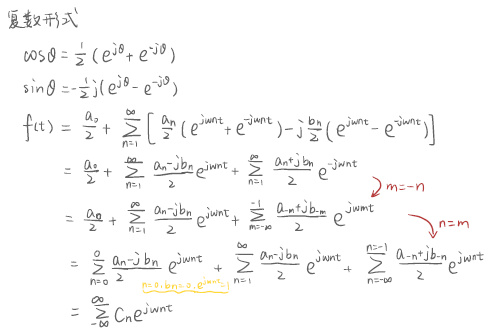 复数形式
cosθ = 1/2 (e^{jθ} + e^{-jθ})
sinθ = -1/2 j(e^{jθ} - e^{-jθ})
f(t) = a₀/2 + ∑_{n=1}^{∞} [ aₙ/2 (e^{jwnt} + e^{-jwnt}) - j bₙ/2 (e^{jwnt} - e^{-jwnt}) ]
= a₀/2 + ∑_{n=1}^{∞} (aₙ - jbₙ)/2 e^{jwnt} + ∑_{n=1}^{∞} (aₙ + jbₙ)/2 e^{-jwnt}
m = -n
= a₀/2 + ∑_{n=1}^{∞} (aₙ - jbₙ)/2 e^{jwnt} + ∑_{m=-∞}^{-1} (a_{-m} + jb_{-m})/2 e^{jwmt}
n = m
= ∑_{n=0}^{0} (aₙ - jbₙ)/2 e^{jwnt} + ∑_{n=1}^{∞} (aₙ - jbₙ)/2 e^{jwnt} + ∑_{n=-∞}^{n=-1} (a_{-n} + jb_{-n})/2 e^{jwnt}
n=0, bn=0, e^{jwnt}=1
= ∑_{-∞}^{∞} Cₙ e^{jwnt}